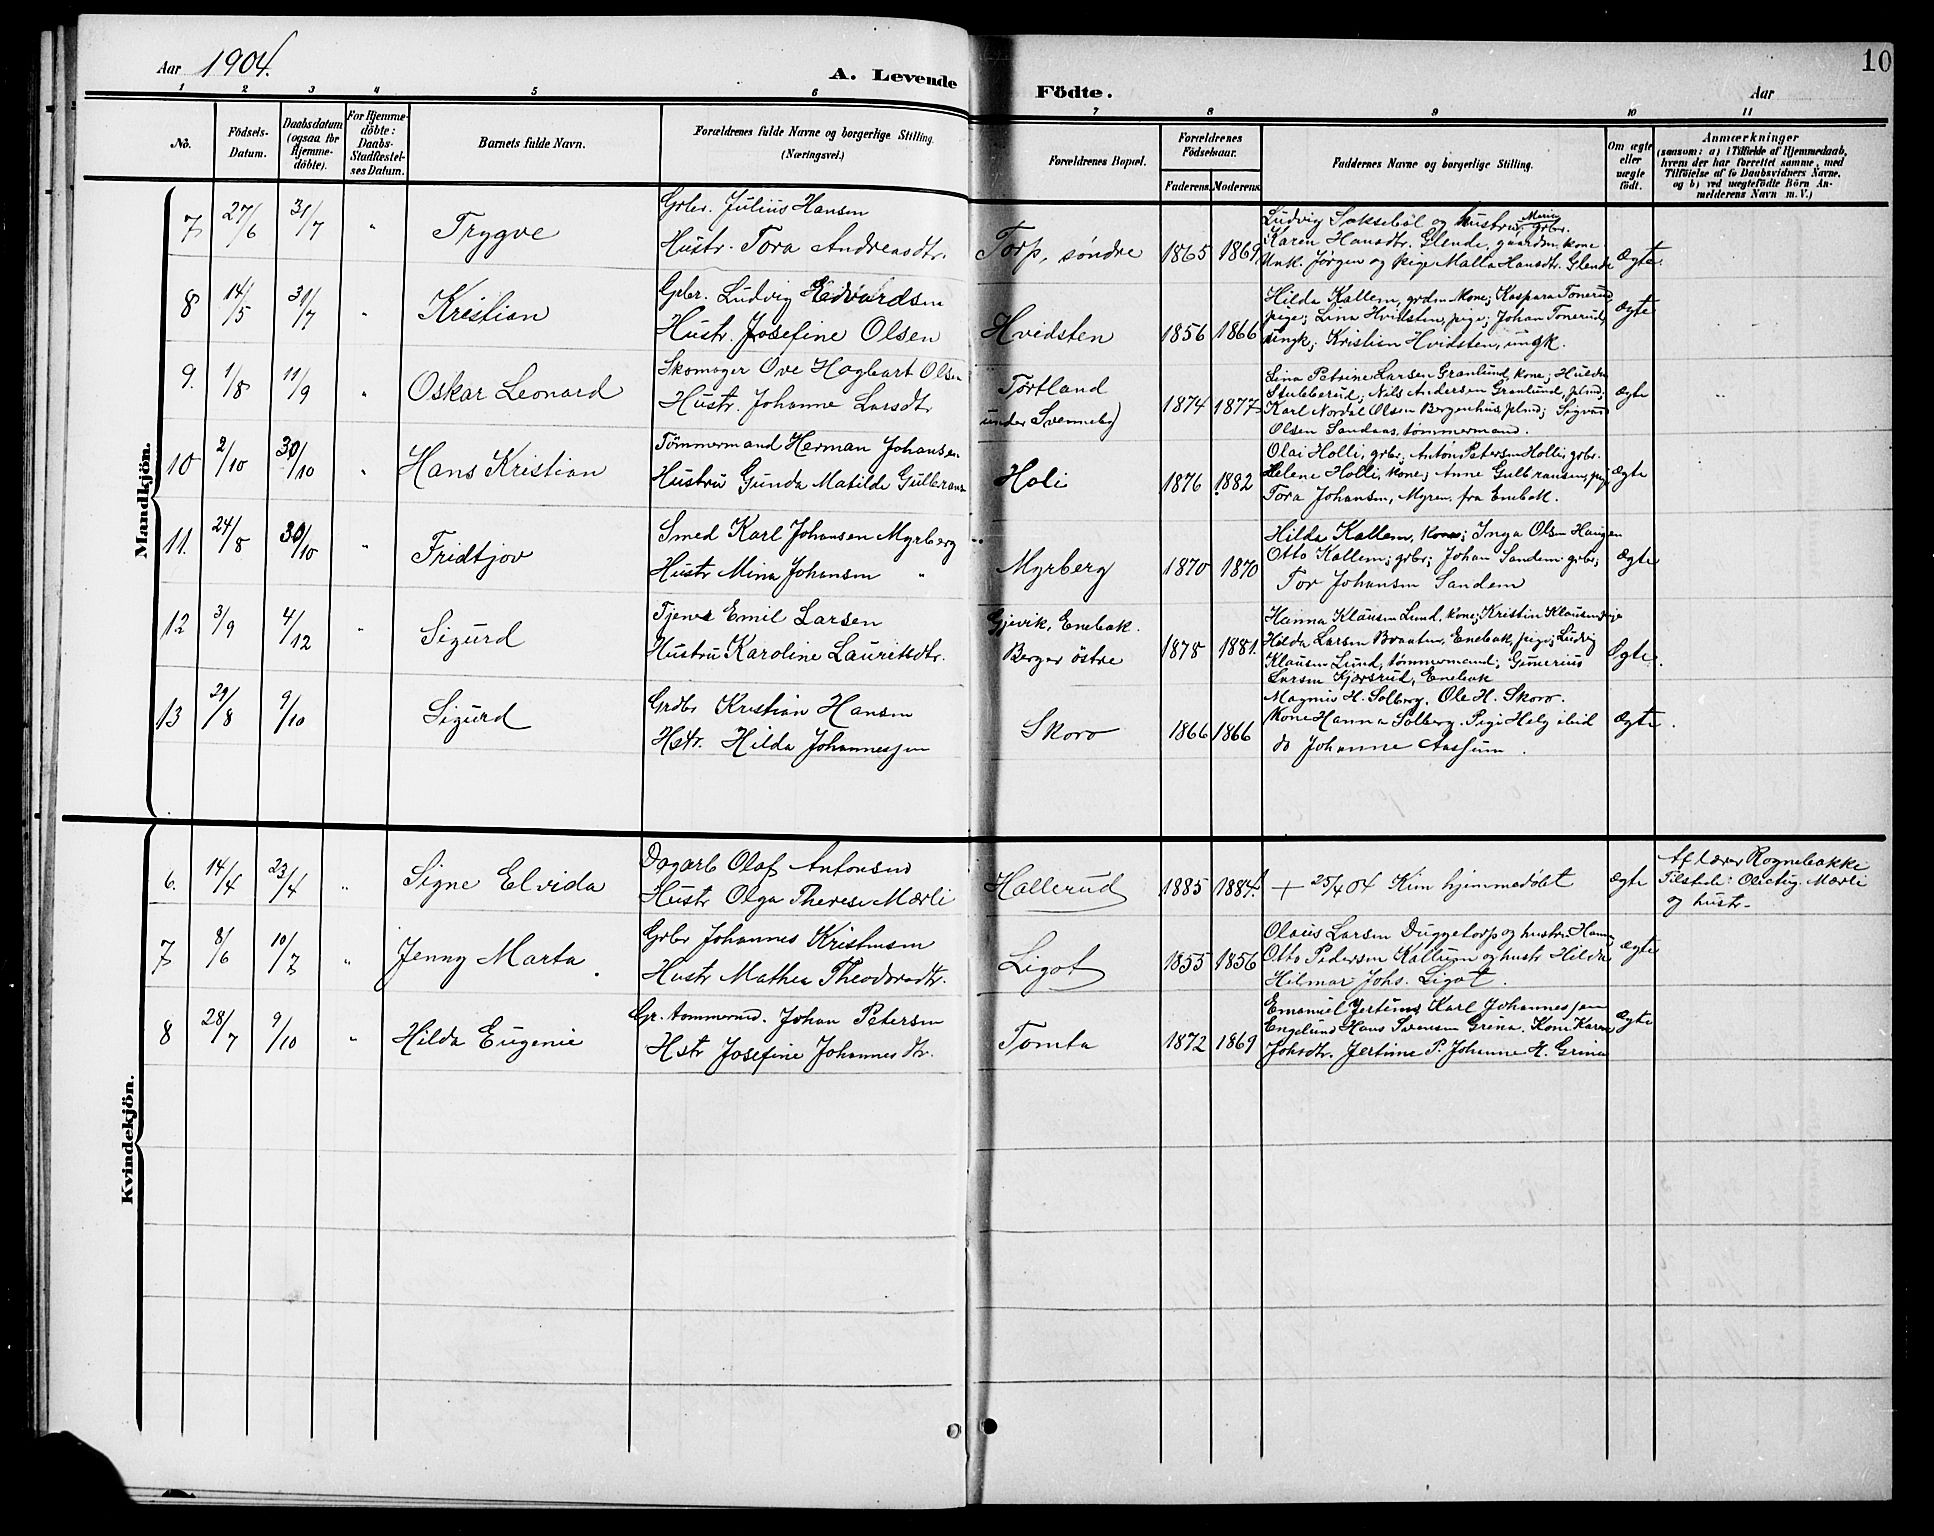 Aar 1904.
A. Levende
Födte.
Aar
10
1 2 3 4 5 6
7 8 9 10 11
No.
Födsels-
Datum.
Daabsdatum
(ogsaa for
Hjemme-
döbte).
For Hjemme-
döbte:
Daabs-
Stadfæstel-
ses Datum.
Barnets fulde Navn.
Forældrenes fulde Navne og borgerlige Stilling.
(Næringsvei.)
Forældrenes Bopæl.
Forældrenes
Födselsaar.
Faderens. Moderens.
Faddernes Navne og borgerlige Stilling.
Om ægte
eller
uægte
födt.
Anmærkninger
(saasom: a) i Tilfælde af Hjemmedaab,
hvem der har forrettet samme, med
Tilföielse af to Daabsvidners Navne,
og b) ved uægtefödte Börn An-
melderens Navn m. V.)
Mandkjön.
7 27/6 31/7 " Trygve
Grbr. Julius Hansen
Hustr. Tora Andreasdtr.
Torp, söndre 1865 1869
Ludvig Saksebøl og hustru grbr.
Karen Hansdtr. Glende, gaardm. kone
Unk. Jørgen og pige Malla Hansdtr. Glende
Ægte.
8 14/5 31/7 " Kristian
Grbr. Ludvig Edvardsen
Hustr. Josefine Olsen
Hvidsten 1856 1866
Hilda Kallem, grdm. kone; Kaspara Tonerud
pige; Lina Hvidsten, pige; Johan Tonerud,
ungk; Kristian Hvidsten, ungk.
Ægte
9. 1/8 11/9 " Oskar Leonard
Skomager Ove Hagbart Olsen
Hustr. Johanne Larsdtr
Tortland
under Svenneby
1874 1877
Lina Petrine Larsen Granlund, kone; Hulda
Stubberud; Nils Andersen Granlund, plmd;
Karl Nordal Olsen Bergenhus plmd; Sigvard
Olsen Sandaas, tømmermand.
Ægte
10 2/10 30/10 " Hans Kristian
Tømmermand Herman Johansen
Hustru Gunda Matilde Gulbrans
Holi 1876 1882
Olai Holli, grbr; Anton Petersen Holli, grbr.
Helene Holli, kone; Anne Gulbransen, pige
Tora Johansen, Myren, fra Enebak.
Ægte
11. 24/8 30/10 " Fridtjov
Smed Karl Johansen Myrberg
Hustr Mina Johansen "
Myrberg 1870 1870
Hilda Kallem, kone; Inga Olsen Haugen
Otto Kallem; grbr; Johan Sandem grbr;
Tor Johansen Sandem
Ægte
12 3/9 4/12 " Sigurd
Tjener Emil Larsen
Hustru Karoline Lauritsdtr.
Gjevik, Enebak.
Berger östre
1878 1881.
Hanna Klausen Lund, kone; Kristin Klausen pige
Hilda Larsen Braaten, Enebak, pige; Ludvig
Klausen Lund, tømmermand; Gunerius
Larsen Kjærsrud, Enebak
Ægte.
13 29/8 9/10 Sigurd
Grdbr Kristian Hansen
Hstr. Hilda Johannessen
Skoro 1866 1866
Magnus H. Solberg. Ole H. Skoro.
Kone Hanna Solberg. Pige Helg ibid
do Johanne Aasum.
Ægte.
Kvindekjön.
6. 14/4 23/4 " Signe Elvida
Dagarb Olaf Antonsen
Hustr Olga Therese Mærli
Hallerud 1885 1884.
+ 25/4 04 Kun hjemmedøbt
Ægte
Af lærer Rognebakke
Tilstede: Mærli
og hustr.
7 8/6 10/7 " Jenny Marta
Grbr Johannes Kristensen
Hustr Mathea Theodorsdtr.
Ligot 1855 1856
Olaus Larsen Duggetorp og hustru Hanna
Otto Pedersen Kallum og hustr Hilda
Hilmar Johs. Ligot.
Ægte
8 28/7 9/10 " Hilda Eugenie
Gr. tømmermd. Johan Petersen
Hstr Josefine Johannesdtr.
Tomta 1872 1869
Emanuel Jertine, Karl Johannessen
Engelund Hans Svensen Grina. Kone Karen
Johsdtr. Jertine P. Johanne H. Grina
Ægte